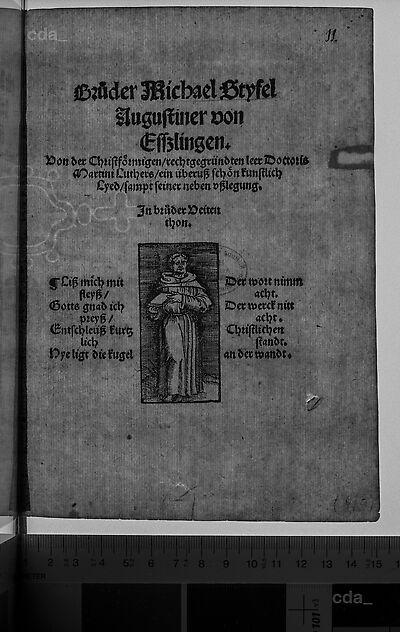 cda_
11
Brůder Michael Styfel
Augustiner von
Esszlingen.
Von der Christförmigen/rechtgegründten leer Doctoris
Martini Luthers/ein überuß schön kunstlich
Lyed/sampt seiner neben vßlegung.
In brůder Veiten
thon.
¶ Liß mich mit
fleyß/
Gotts gnad ich
preyß/
Entschleuß kurtz
lich
Hye ligt die kugel
Der wort nimm
acht.
Der werck nitt
acht.
Christlichen
standt.
an der wandt.
1 2 3 4 5 6 7 8 9 10 11 12 13 14 15
cda_